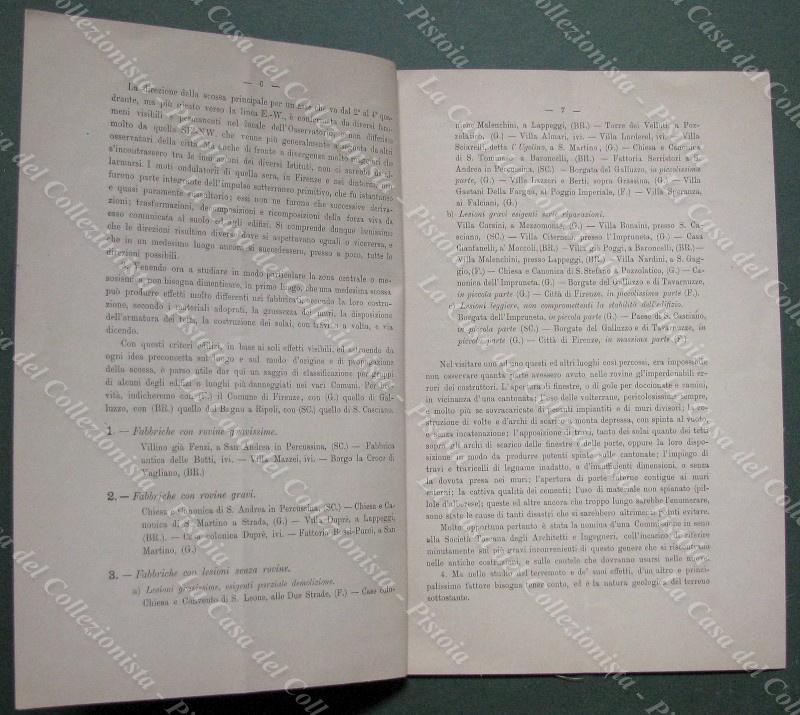 — 6 —
La direzione della scossa principale per un asse che va dal 2° al 4° qua-
drante, ma più piegato verso la linea E.-W., è confermata da diversi feno-
meni visibili e permanenti nel locale dell'Osservatorio; e non differisce
molto da quella SE-NW. che venne più generalmente accennata da
osservatori della città. Ma anche di fronte a divergenze molto maggiori che
s'incontrassero tra le indicazioni dei diversi Istituti, non ci sarebbe da al-
larmarsi. I moti ondulatorii di quella sera, in Firenze e nei dintorni, non
furono parte integrante dell'impulso sotterraneo primitivo, che fu istantaneo
e quasi puramente sussultorio; essi non ne furono che successive deriva-
zioni; trasformazioni, decomposizioni e ricomposizioni della forza viva da
esso comunicata al suolo ed agli edifizi. Si comprende dunque benissimo
che le direzioni risultino diverse dove si aspettavano eguali o viceversa, e
che in un medesimo luogo ancora si succedessero, presso a poco, tutte le
direzioni possibili.
Venendo ora a studiare in modo particolare la zona centrale o me-
sosismica non bisogna dimenticare, in primo luogo, che una medesima scossa
può produrre effetti molto differenti nei fabbricati, secondo la loro costru-
zione, secondo i materiali adoprati, la grossezza dei muri, la disposizione
dell'armatura dei tetti, la costruzione dei solai, con travi o a volta, e via
dicendo.
Con questi criteri edilizi, in base ai soli effetti visibili, ed astraendo da
ogni idea preconcetta sul luogo e sul modo d'origine e di propagazione
della scossa, è parso utile dar qui un saggio di classificazione per gruppi
di alcuni degli edifizi o luoghi più danneggiati nei vari Comuni. Per bre-
vità, indicheremo con (F.) il Comune di Firenze, con (G.) quello di Gal-
luzzo, con (BR.) quello del Bagno a Ripoli, con (SC.) quello di S. Casciano.
1. — Fabbriche con rovine gravissime.
Villino già Fenzi, a San Andrea in Percussina, (SC.) — Fabbrica
antica delle Botti, ivi. — Villa Mazzei, ivi. — Borgo la Croce di
Vagliano, (BR.)
2. — Fabbriche con rovine gravi.
Chiesa e Canonica di S. Andrea in Percussina, (SC.) — Chiesa e Ca-
nonica di S. Martino a Strada, (G.) — Villa Duprè, a Lappeggi,
(BR.) — Casa colonica Duprè, ivi. — Fattoria Bossi-Pucci, a San
Martino, (G.)
3. — Fabbriche con lesioni senza rovine.
a) Lesioni gravissime, esigenti parziale demolizione.
Chiesa e Convento di S. Leone, alle Due Strade, (F.) — Case colo-
— 7 —
niche Malenchini, a Lappeggi, (BR.) — Torre dei Velluti, a Poz-
zolatico, (G.) — Villa Almari, ivi. — Villa Larderel, ivi. — Villa
Sciarelli, detta l'Ugolino, a S. Martino, (G.) — Chiesa e Canonica
di S. Tommaso a Baroncelli, (BR.) — Fattoria Serristori a S.
Andrea in Percussina, (SC.) — Borgata del Galluzzo, in piccolissima
parte, (G.) — Villa Luzzeri e Berti, sopra Grassina, (G.) — Villa
Gaetani Della Fargna, al Poggio Imperiale, (F.) — Villa Speranza,
ai Falciani, (G.)
b) Lesioni gravi esigenti serie riparazioni.
Villa Corsini, a Mezzomonte, (G.) — Villa Bonaini, presso S. Ca-
sciano, (SC.) — Villa Citernesi, presso l'Impruneta, (G.) — Casa
Cianfanelli, a' Moccoli, (BR.) — Villa già Poggi, a Baroncelli, (BR.) —
Villa Malenchini, presso Lappeggi, (BR.) — Villa Nardini, a S. Gag-
gio, (F.) — Chiesa e Canonica di S. Stefano a Pozzolatico, (G.) — Ca-
nonica dell'Impruneta, (G.) — Borgate del Galluzzo e di Tavarnuzze,
in piccola parte (G.) — Città di Firenze, in piccolissima parte (F.)
c) Lesioni leggiere, non compromettenti la stabilità dell'edifizio.
Borgata dell'Impruneta, in parte (G.) — Paese di S. Casciano,
in piccola parte (SC.) — Borgate del Galluzzo e di Tavarnuzze, in
piccola parte (G.) — Città di Firenze, in massima parte (F.)
Nel visitare uno ad uno questi ed altri luoghi così percossi, era impossibile
non osservare quanta parte avessero avuto nelle rovine gl'imperdonabili er-
rori dei costruttori. L'apertura di finestre, o di gole per docciate e camini,
in vicinanza d'un cantonata; l'uso delle volterrane, pericolosissimo sempre,
e molto più se sovraccaricate di pesanti impiantiti e di muri divisori; la co-
struzione di volte e d'archi di scarico a monta depressa, con spinta al vuoto,
e senza incatenazione; l'apposizione di travi, tanto dei solai quanto dei tetti
sopra gli archi di scarico delle finestre e delle porte, oppure la loro dispo-
sizione in modo da produrre potenti spinte sulle cantonate; l'impiego di
travi e travicelli di legname inadatto, o d'insufficienti dimensioni, o senza
la dovuta presa nei muri; l'apertura di porte interne contigue ai muri
esterni; la cattiva qualità dei cementi; l'uso di materiale non spianato (pil-
lole d'alberese); queste ed altre ancora che troppo lungo sarebbe l'enumerare,
sono state le cause di tanti disastri che si sarebbero altrimenti potuti evitare.
Molto opportuna pertanto è stata la nomina d'una Commissione in seno
alla Società Toscana degli Architetti e Ingegneri, coll'incarico di riferire
minutamente sui più gravi inconvenienti di questo genere che si riscontrano
nelle antiche costruzioni, e sulle cautele che dovranno usarsi nelle nuove.
4. Ma nello studio del terremoto e de' suoi effetti, d'un altro e princi-
palissimo fattore bisogna tener conto, ed è la natura geologica del terreno
sottostante.
La Casa del Collezionista - Pistoia